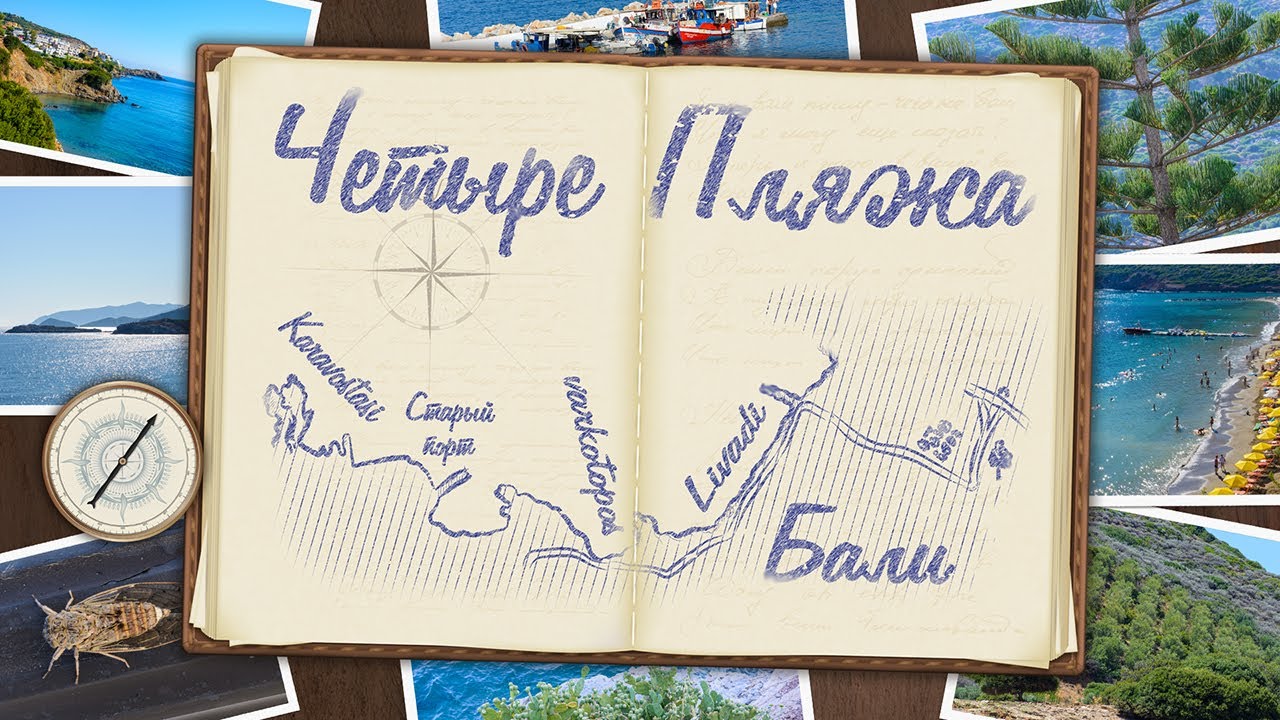 Четыре Пляжа
Karavoitasi
Старый
порт
varkotopos
Livadi
Бали